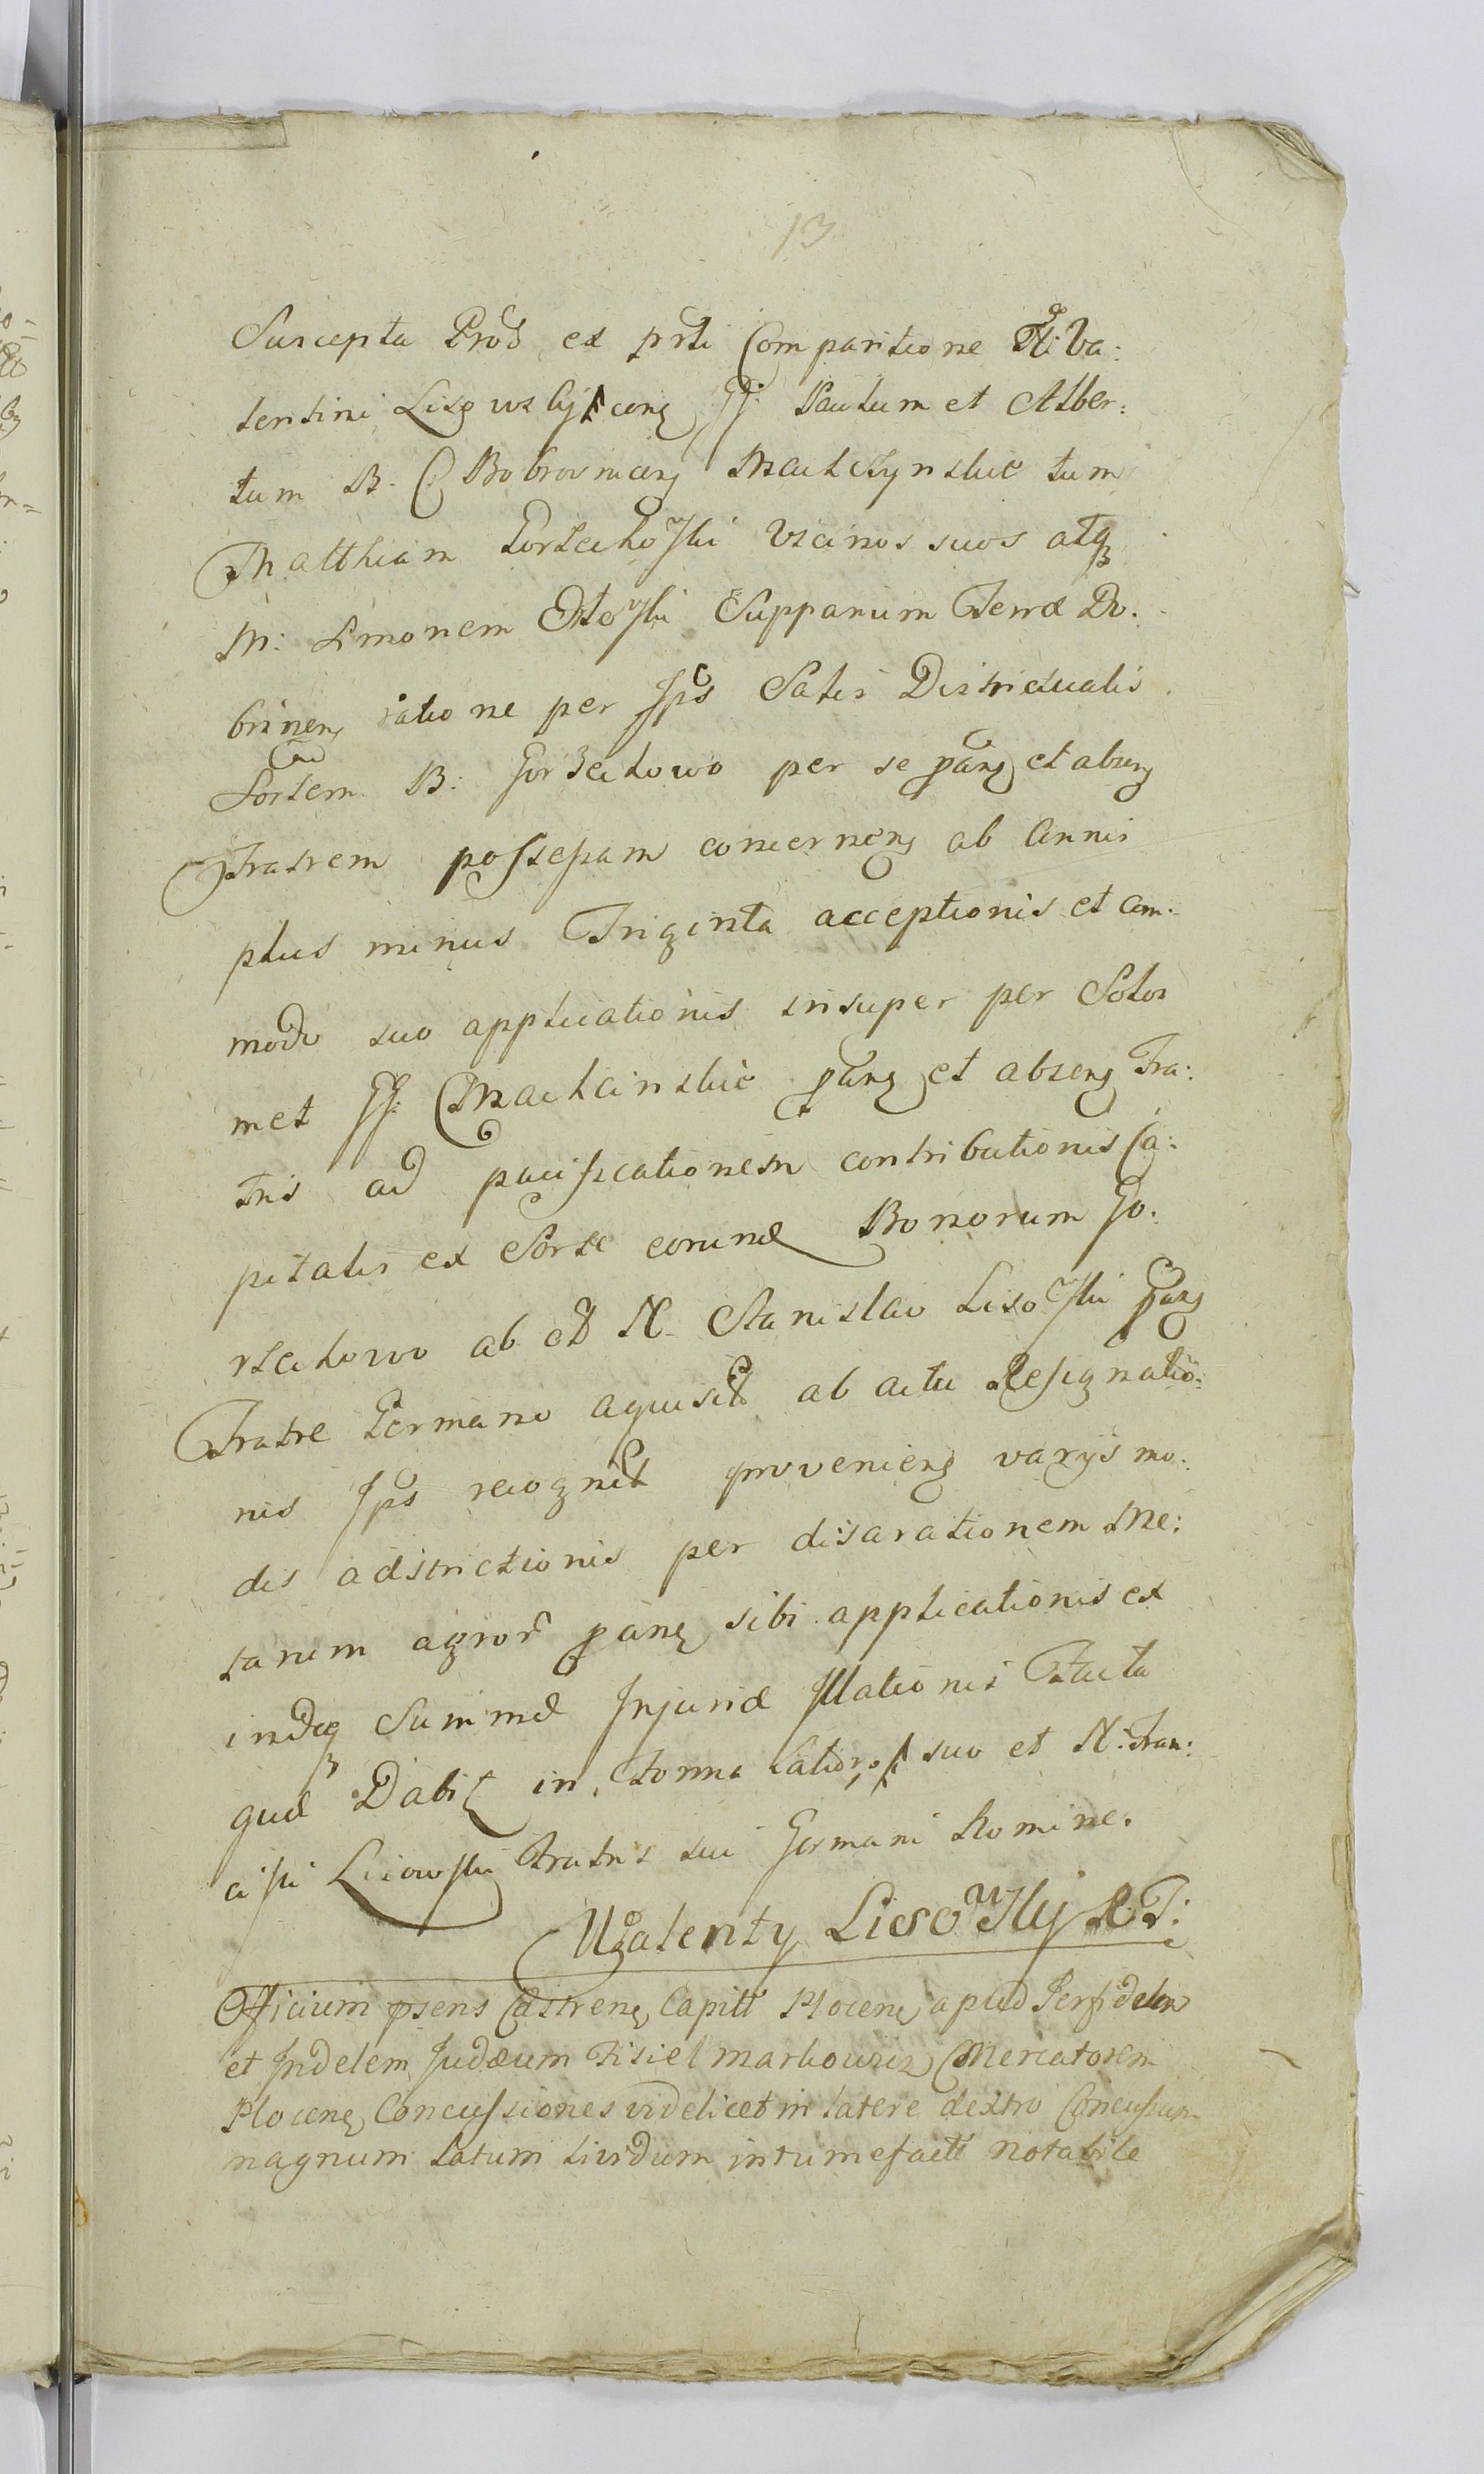 13
Suscepta Prod ex prti Comparitione N: Va:
lentini Lisowskÿ cong JJ: Paulum et Alber:
tum B. Bobrovniceng Machczynskie tum
Matthiam Gorzechowski Vicinos suos atq
M: Simonem Supparium Terræ Do:
brineng ratione per Jps Satis Districtualis
Sortem B: Gorzechowo per se pang et abseng
Fratrem possessam concerneng ab Annis
plus minus Triginta acceptionis et com:
modo suo applicationis insuper per Solos
met JJ: Machcinskie pang et abseng Fra:
tris ad pacificationem contributionis Ca:
pitalis ex Sorte eorund Bonorum Go:
rzechowo ab N. Stanislao Lisowski pang
Fratre Germano aquisit ab actu Resignatio:
nis Jps recognit provenieng varÿs mo:
dis adstrictionis per disarationem Me:
tarum agror pang sibi applicationis ex
indeq Summæ Injuriæ Illationis Facta
quæ Dabit in Forma Latior suo et N: Fran:
cisci Lisowski Fratris sui Germani Nomine.
Walenty Lisowskÿ
Officium psens Castreng Capitt Ploceng apud Perfidum
et Infidelem Judæum Fisiel Markowicz Mercatorem
Ploceng Concussiones videlicet in latere dextro Concussum
magnum Latum Lividum intumefactt notabile